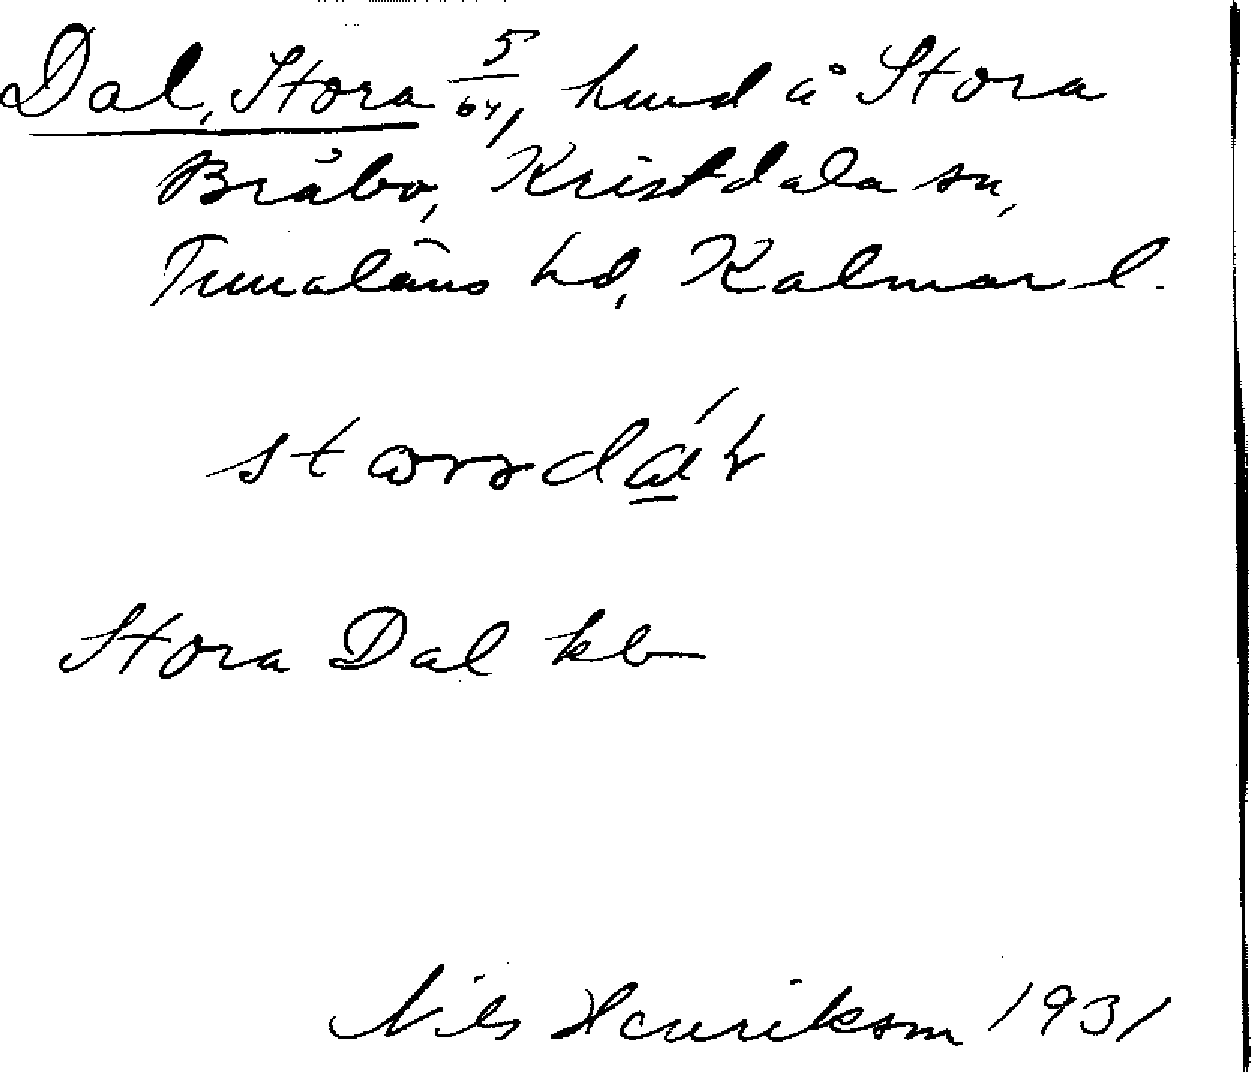 Dal, Stora 5/64, hmd å Stora
Bråbo, Kristdala sn,
Tunaläns hd, Kalmar l.
Stora Dal kb
Nils Henrikson 1931